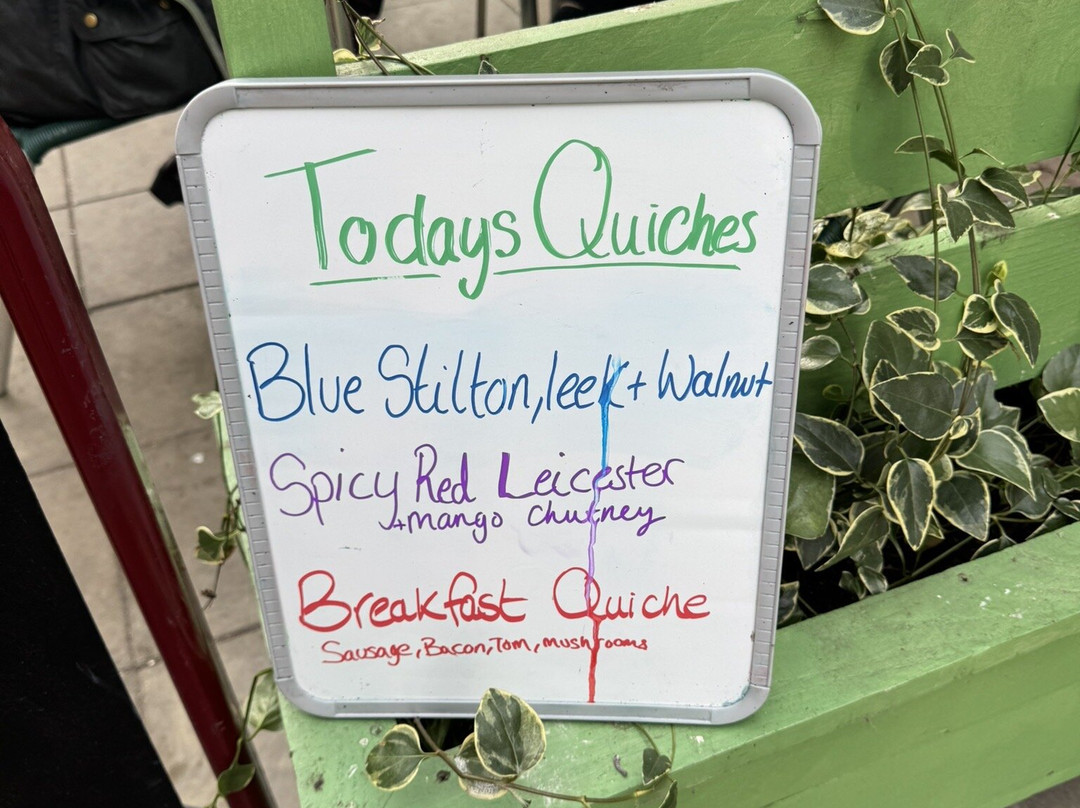 Todays Quiches
Blue Stilton, leek + Walnut
Spicy Red Leicester
+ mango chutney
Breakfast Quiche
Sausage, Bacon, Tom, mushrooms